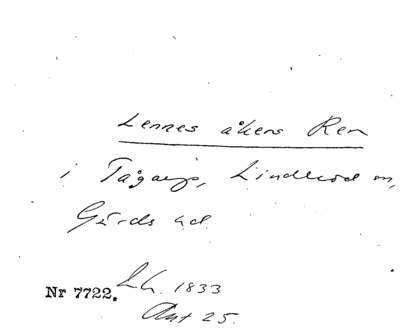 Lennes åkers Ren
i Tågarp, Linderöd sn,
Gärds hd.
Nr 7722. L.h. 1833
Akt 25.